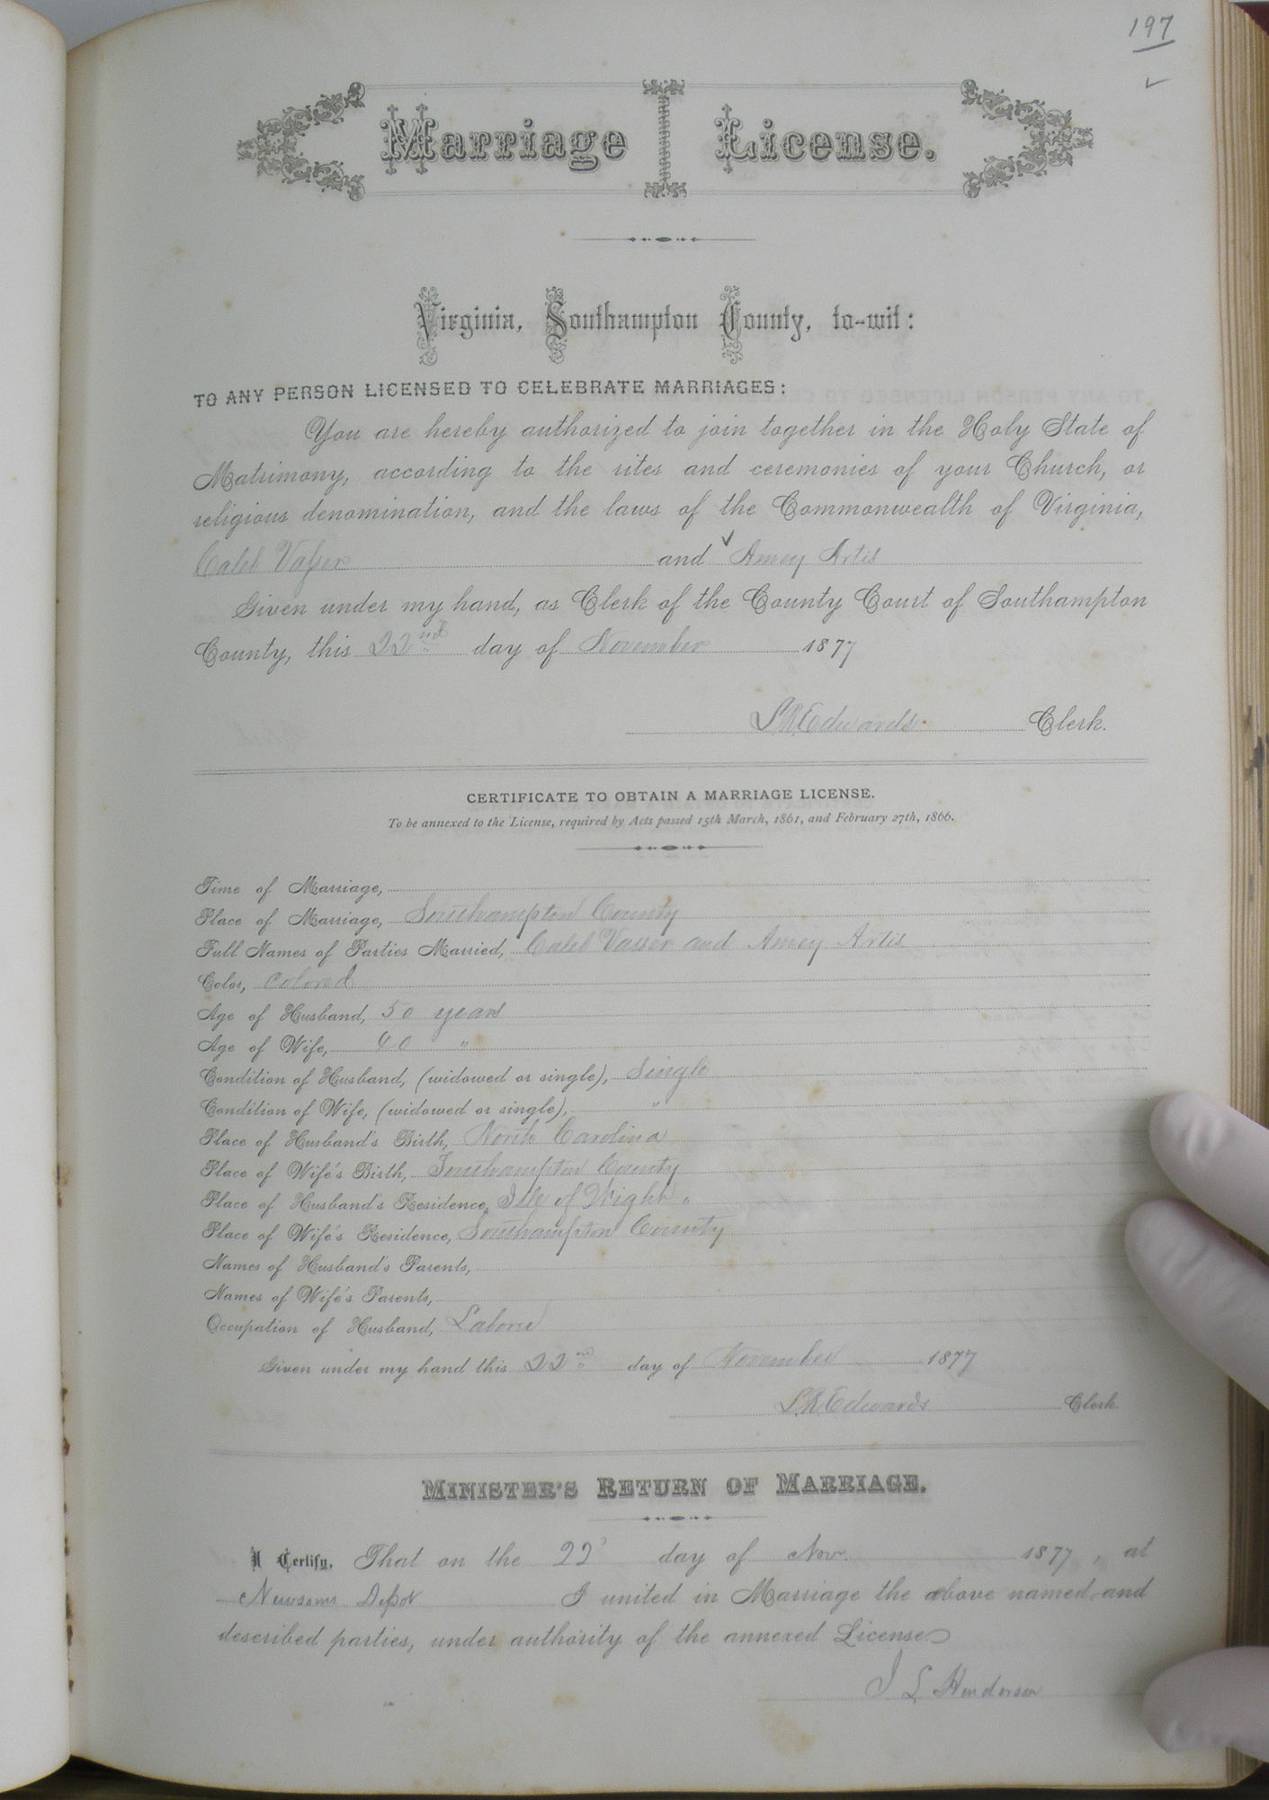 197
Marriage License.
Virginia, Southampton County, to-wit:
TO ANY PERSON LICENSED TO CELEBRATE MARRIAGES:
You are hereby authorized to join together in the Holy State of
Matrimony, according to the rites and ceremonies of your Church, or
religious denomination, and the laws of the Commonwealth of Virginia,
Caleb Vasser and Amey Artis
Given under my hand, as Clerk of the County Court of Southampton
County, this 22nd day of November 1877
L.R. Edwards Clerk.
CERTIFICATE TO OBTAIN A MARRIAGE LICENSE.
To be annexed to the License, required by Acts passed 15th March, 1861, and February 27th, 1866.
Time of Marriage,
Place of Marriage, Southampton County
Full Names of Parties Married, Caleb Vasser and Amey Artis
Color, Colored
Age of Husband, 50 years
Age of Wife, 40 "
Condition of Husband, (widowed or single), Single
Condition of Wife, (widowed or single), "
Place of Husband's Birth, North Carolina
Place of Wife's Birth, Southampton County
Place of Husband's Residence, Isle of Wight "
Place of Wife's Residence, Southampton County
Names of Husband's Parents,
Names of Wife's Parents,
Occupation of Husband, Laborer
Given under my hand this 22nd day of November 1877
L.R. Edwards Clerk
MINISTER'S RETURN OF MARRIAGE.
I Certify, That on the 22 day of Nov. 1877, at
Newsoms Depot I united in Marriage the above named and
described parties, under authority of the annexed License
J L Henderson